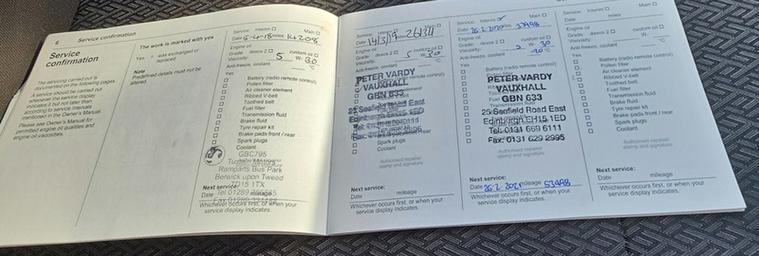 6 Service confirmation
Service
confirmation
The servicing carried out is
documented on the following pages.
A service should be carried out
whenever the service display
indicates it but not later than
according to service intervals
mentioned in the Owner's Manual.
Please see Owner's Manual for
permitted engine oil qualities and
engine oil viscosities.
The work is marked with yes
Yes = was exchanged or
replaced
Note
Predefined details must be
altered.
Service: Interim □ Main □
Date miles
Engine oil
Grade: dexos 2 □ custom oil □
Viscosity: 5 W 30
Anti-freeze, coolant
Yes
□ Battery (radio remote control)
□ Pollen filter
□ Air cleaner element
□ Ribbed V-belt
□ Toothed belt
□ Fuel filter
□ Transmission fluid
□ Brake fluid
□ Tyre repair kit
□ Brake pads front / rear
□ Spark plugs
□ Coolant
GBC795
Ramparts Bus Park
Berwick upon Tweed
TD15 1TX
Next service:
Date mileage
Whichever occurs first, or when your
service display indicates.
Date 14/3/19
Engine oil
Grade: dexos 2 □ custom oil □
Viscosity: 5 W 30
Anti-freeze, coolant
Yes
Battery (radio remote control)
PETER VARDY
VAUXHALL
GBN 633
25 Seafield Road East
Spark plugs
Coolant
Authorised repairer
stamp and signature
Next service:
Date mileage
Whichever occurs first, or when your
service display indicates.
Service: Interim Main □
Date 26-2-2020 miles
Engine oil
Grade: dexos 2 □ custom oil □
Viscosity: W 30
Anti-freeze, coolant
Yes
Battery (radio remote control)
Pollen filter
PETER VARDY
VAUXHALL
GBN 633
25 Seafield Road East
Edinburgh EH15 1ED
Tel: 0131 669 6111
Fax: 0131 629 2995
Authorised repairer
stamp and signature
Next service:
Date mileage
Whichever occurs first, or when your
service display indicates.
Service: Interim □ Main □
Date miles
Engine oil
Grade: dexos 2 □ custom oil □
Viscosity: W
Anti-freeze, coolant
Yes
□ Battery (radio remote control)
□ Pollen filter
□ Air cleaner element
□ Ribbed V-belt
□ Toothed belt
□ Fuel filter
□ Transmission fluid
□ Brake fluid
□ Tyre repair kit
□ Brake pads front / rear
□ Spark plugs
□ Coolant
Authorised repairer
stamp and signature
Next service:
Date mileage
Whichever occurs first, or when your
service display indicates.